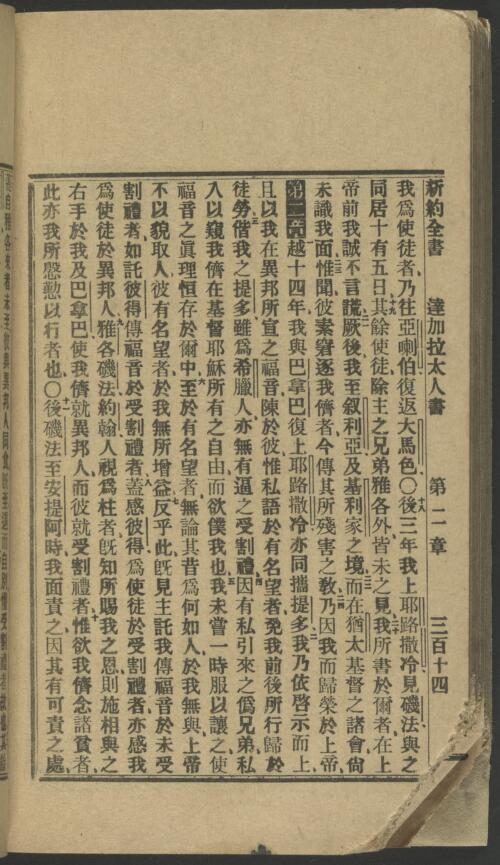 新約全書　達加拉太人書　第二章　三百十四
我爲使徒者乃往亞喇伯復返大馬色○十八後三年我上耶路撒冷見磯法與之
同居十有五日十九其餘使徒除主之兄弟雅各外皆未之見二十我所書於爾者在上
帝前我誠不言謊二一厥後我至叙利亞及基利家之境二二而在猶太基督之諸會尙
未識我面二三惟聞彼素窘逐我儕者今傳其所殘害之敎二四乃因我而歸榮於上帝
第二章一越十四年我與巴拿巴復上耶路撒冷亦同攜提多二我乃依啓示而上
且以我在異邦所宣之福音陳於彼惟私語於有名望者免我前後所行歸於
徒勞三偕我之提多雖爲希臘人亦無有逼之受割禮四因有私引來之僞兄弟私
入以窺我儕在基督耶穌所有之自由而欲僕我也五我未嘗一時服以讓之使
福音之眞理恒存於爾中六至於有名望者無論其昔爲何如人於我無與上帝
不以貌取人彼有名望者於我無所增益七反乎此旣見主託我傳福音於未受
割禮者如託彼得傳福音於受割禮者八蓋感彼得爲使徒於受割禮者亦感我
爲使徒於異邦人九雅各磯法約翰人視爲柱者旣知所賜我之恩則施相與之
右手於我及巴拿巴使我儕就異邦人而彼就受割禮者十惟欲我儕念諸貧者
此亦我所慇懃以行者也○十一後磯法至安提阿時我面責之因其有可責之處